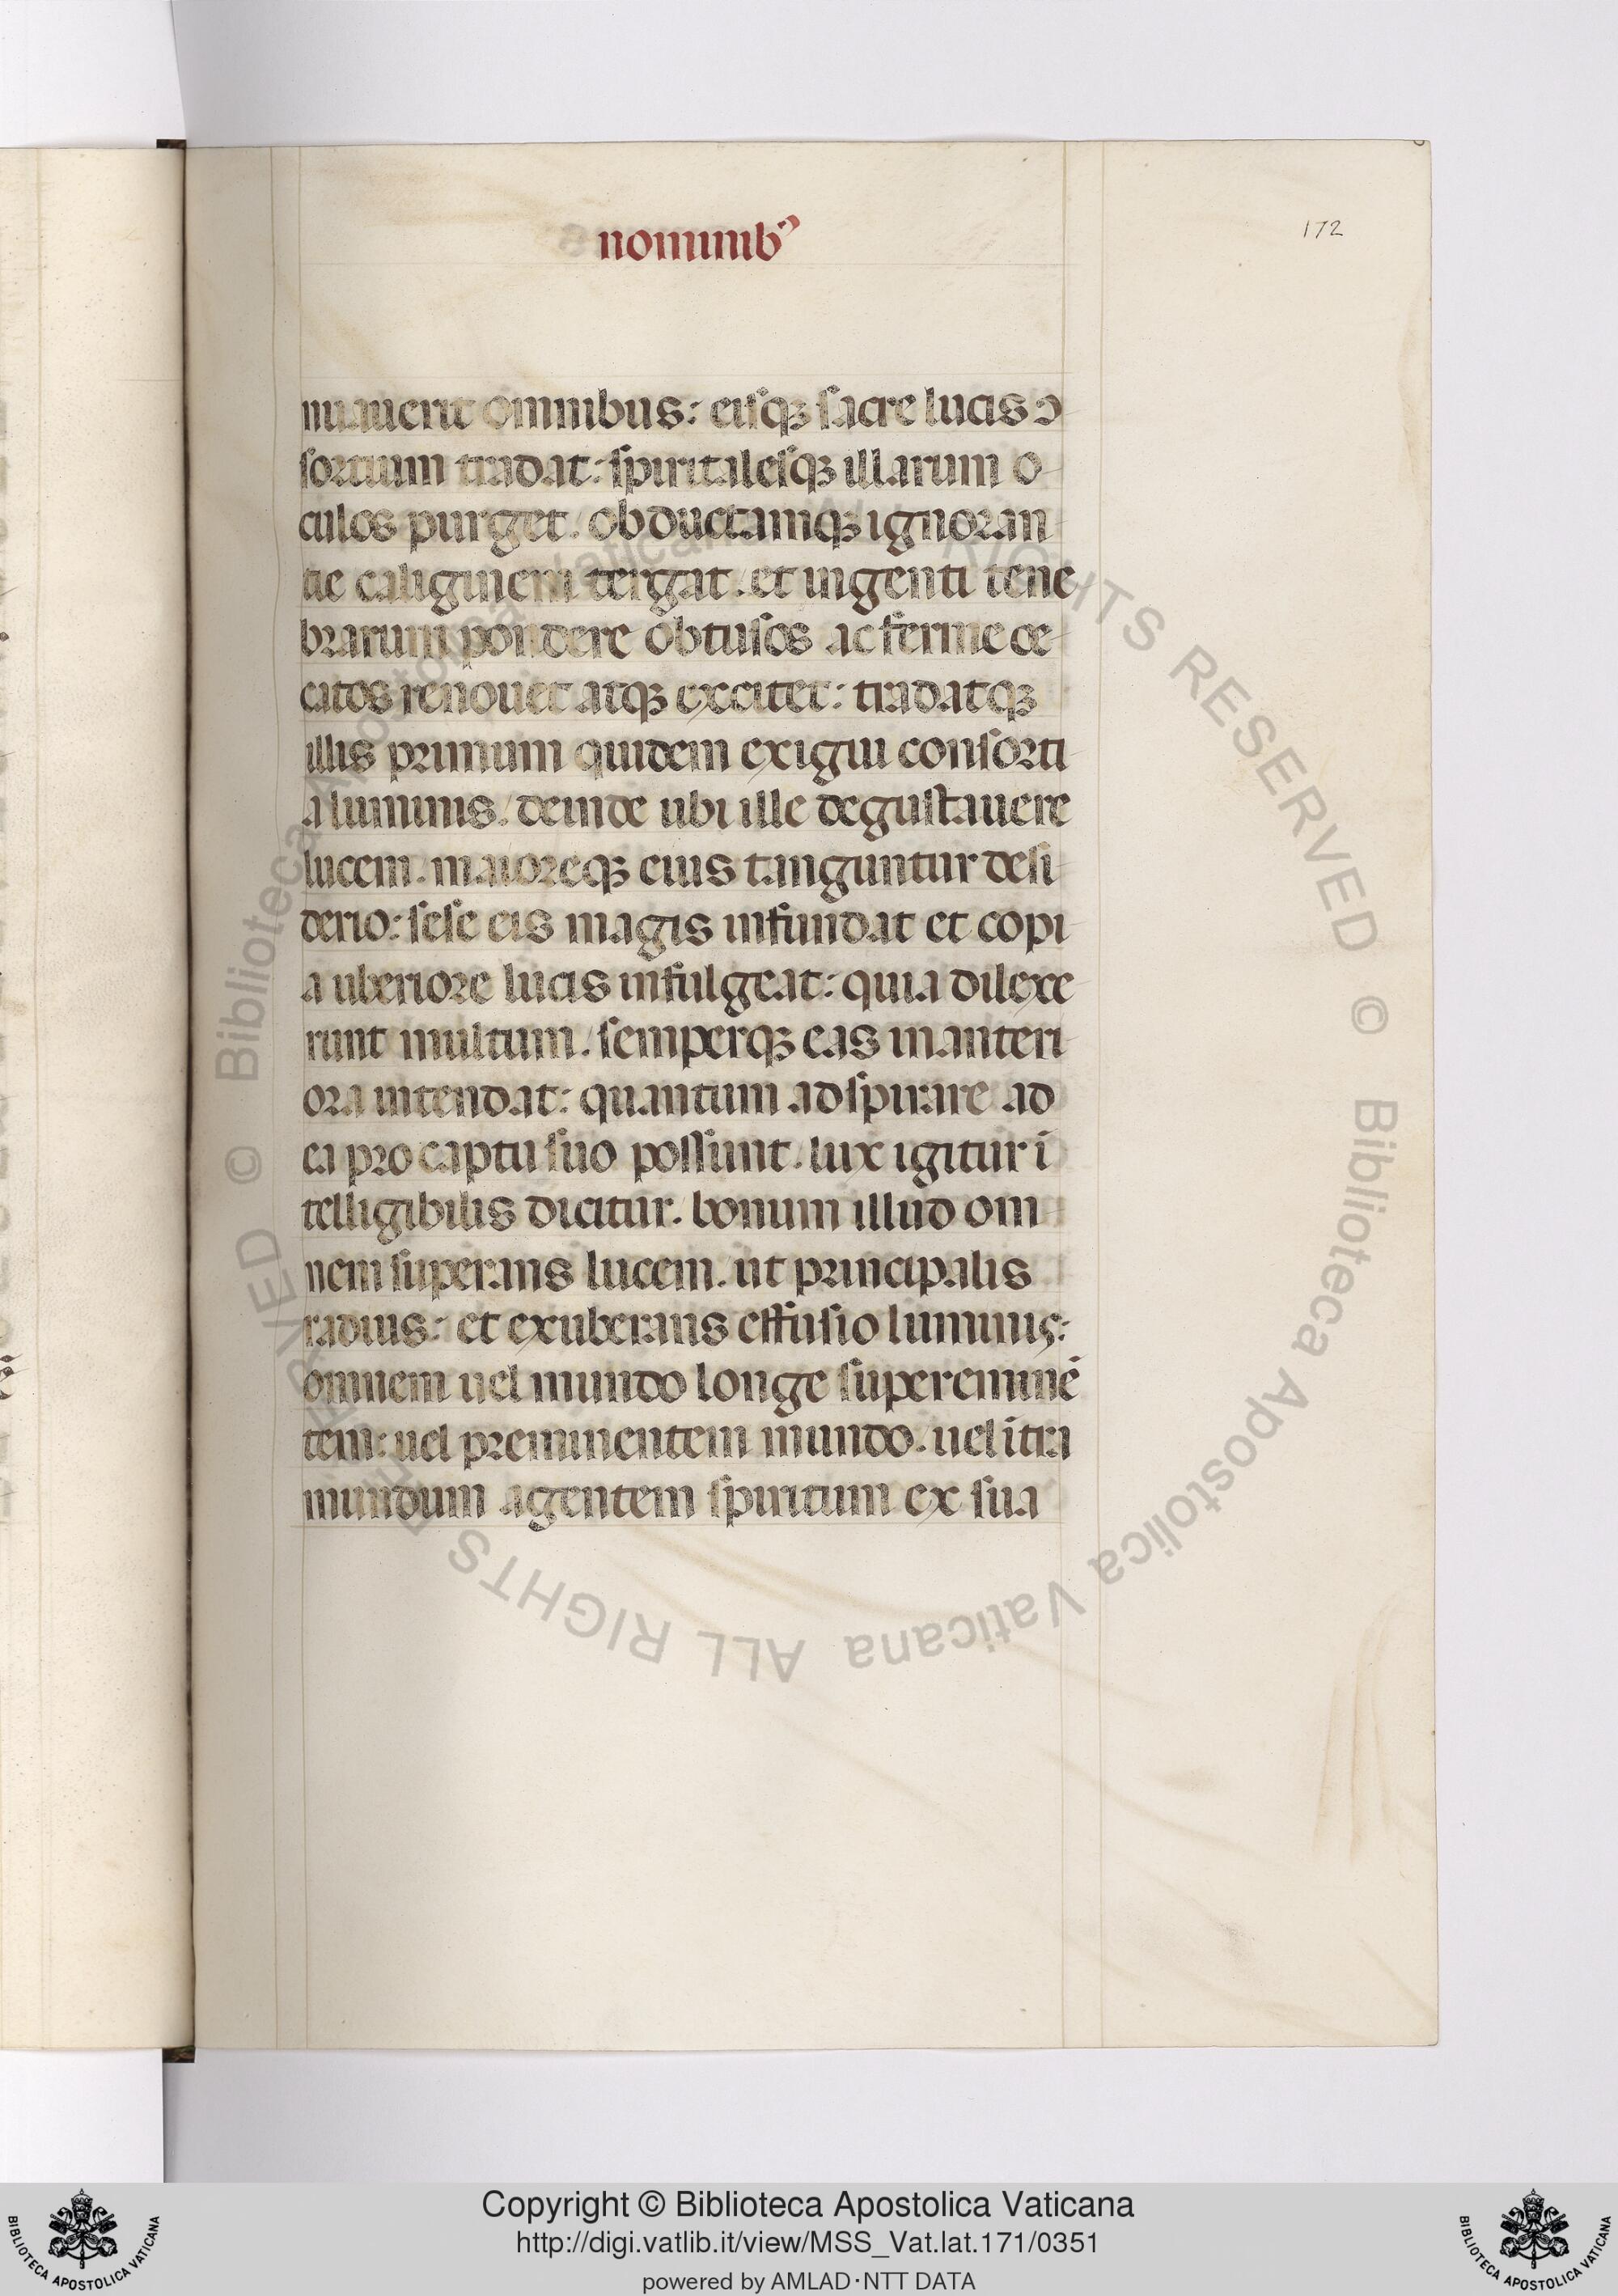 nominibꝰ
172
nuauerit omnibus: eisqꝫ sacre lucis ↄ
sortium tradat: spiritalesqꝫ illarum o
culos purget. obductamqꝫ ignoran
tie caliginem tergat. et ingenti tene
brarum pondere obtusos ac ferme ce
catos renouet atqꝫ excitet: tradatqꝫ
illis primum quidem exigui consorti
a luminis. deinde ubi ille degustauere
lucem. maioreqꝫ eius tanguntur desi
derio: sese eis magis infundat et copi
a uberiore lucis infulgeat: quia dilexe
runt multum. semperqꝫ eas in anteri
ora intendat: quantum ad spirare ad
ea pro captu suo possunt. lux igitur ī
telligibilis dicitur. bonum illud om
nem superans lucem. ut principalis
radius: et exuberans effusio luminis:
omnem uel mundo longe supereminē
tem: uel preminentem mundo. uel ītra
mundum agentem spiritum ex sua
Copyright © Biblioteca Apostolica Vaticana
http://digi.vatlib.it/view/MSS_Vat.lat.171/0351
powered by AMLAD·NTT DATA
BIBLIOTECA APOSTOLICA VATICANA
BIBLIOTECA APOSTOLICA VATICANA
© Biblioteca Apostolica Vaticana ALL RIGHTS RESERVED © Biblioteca Apostolica Vaticana ALL RIGHTS RESERVED